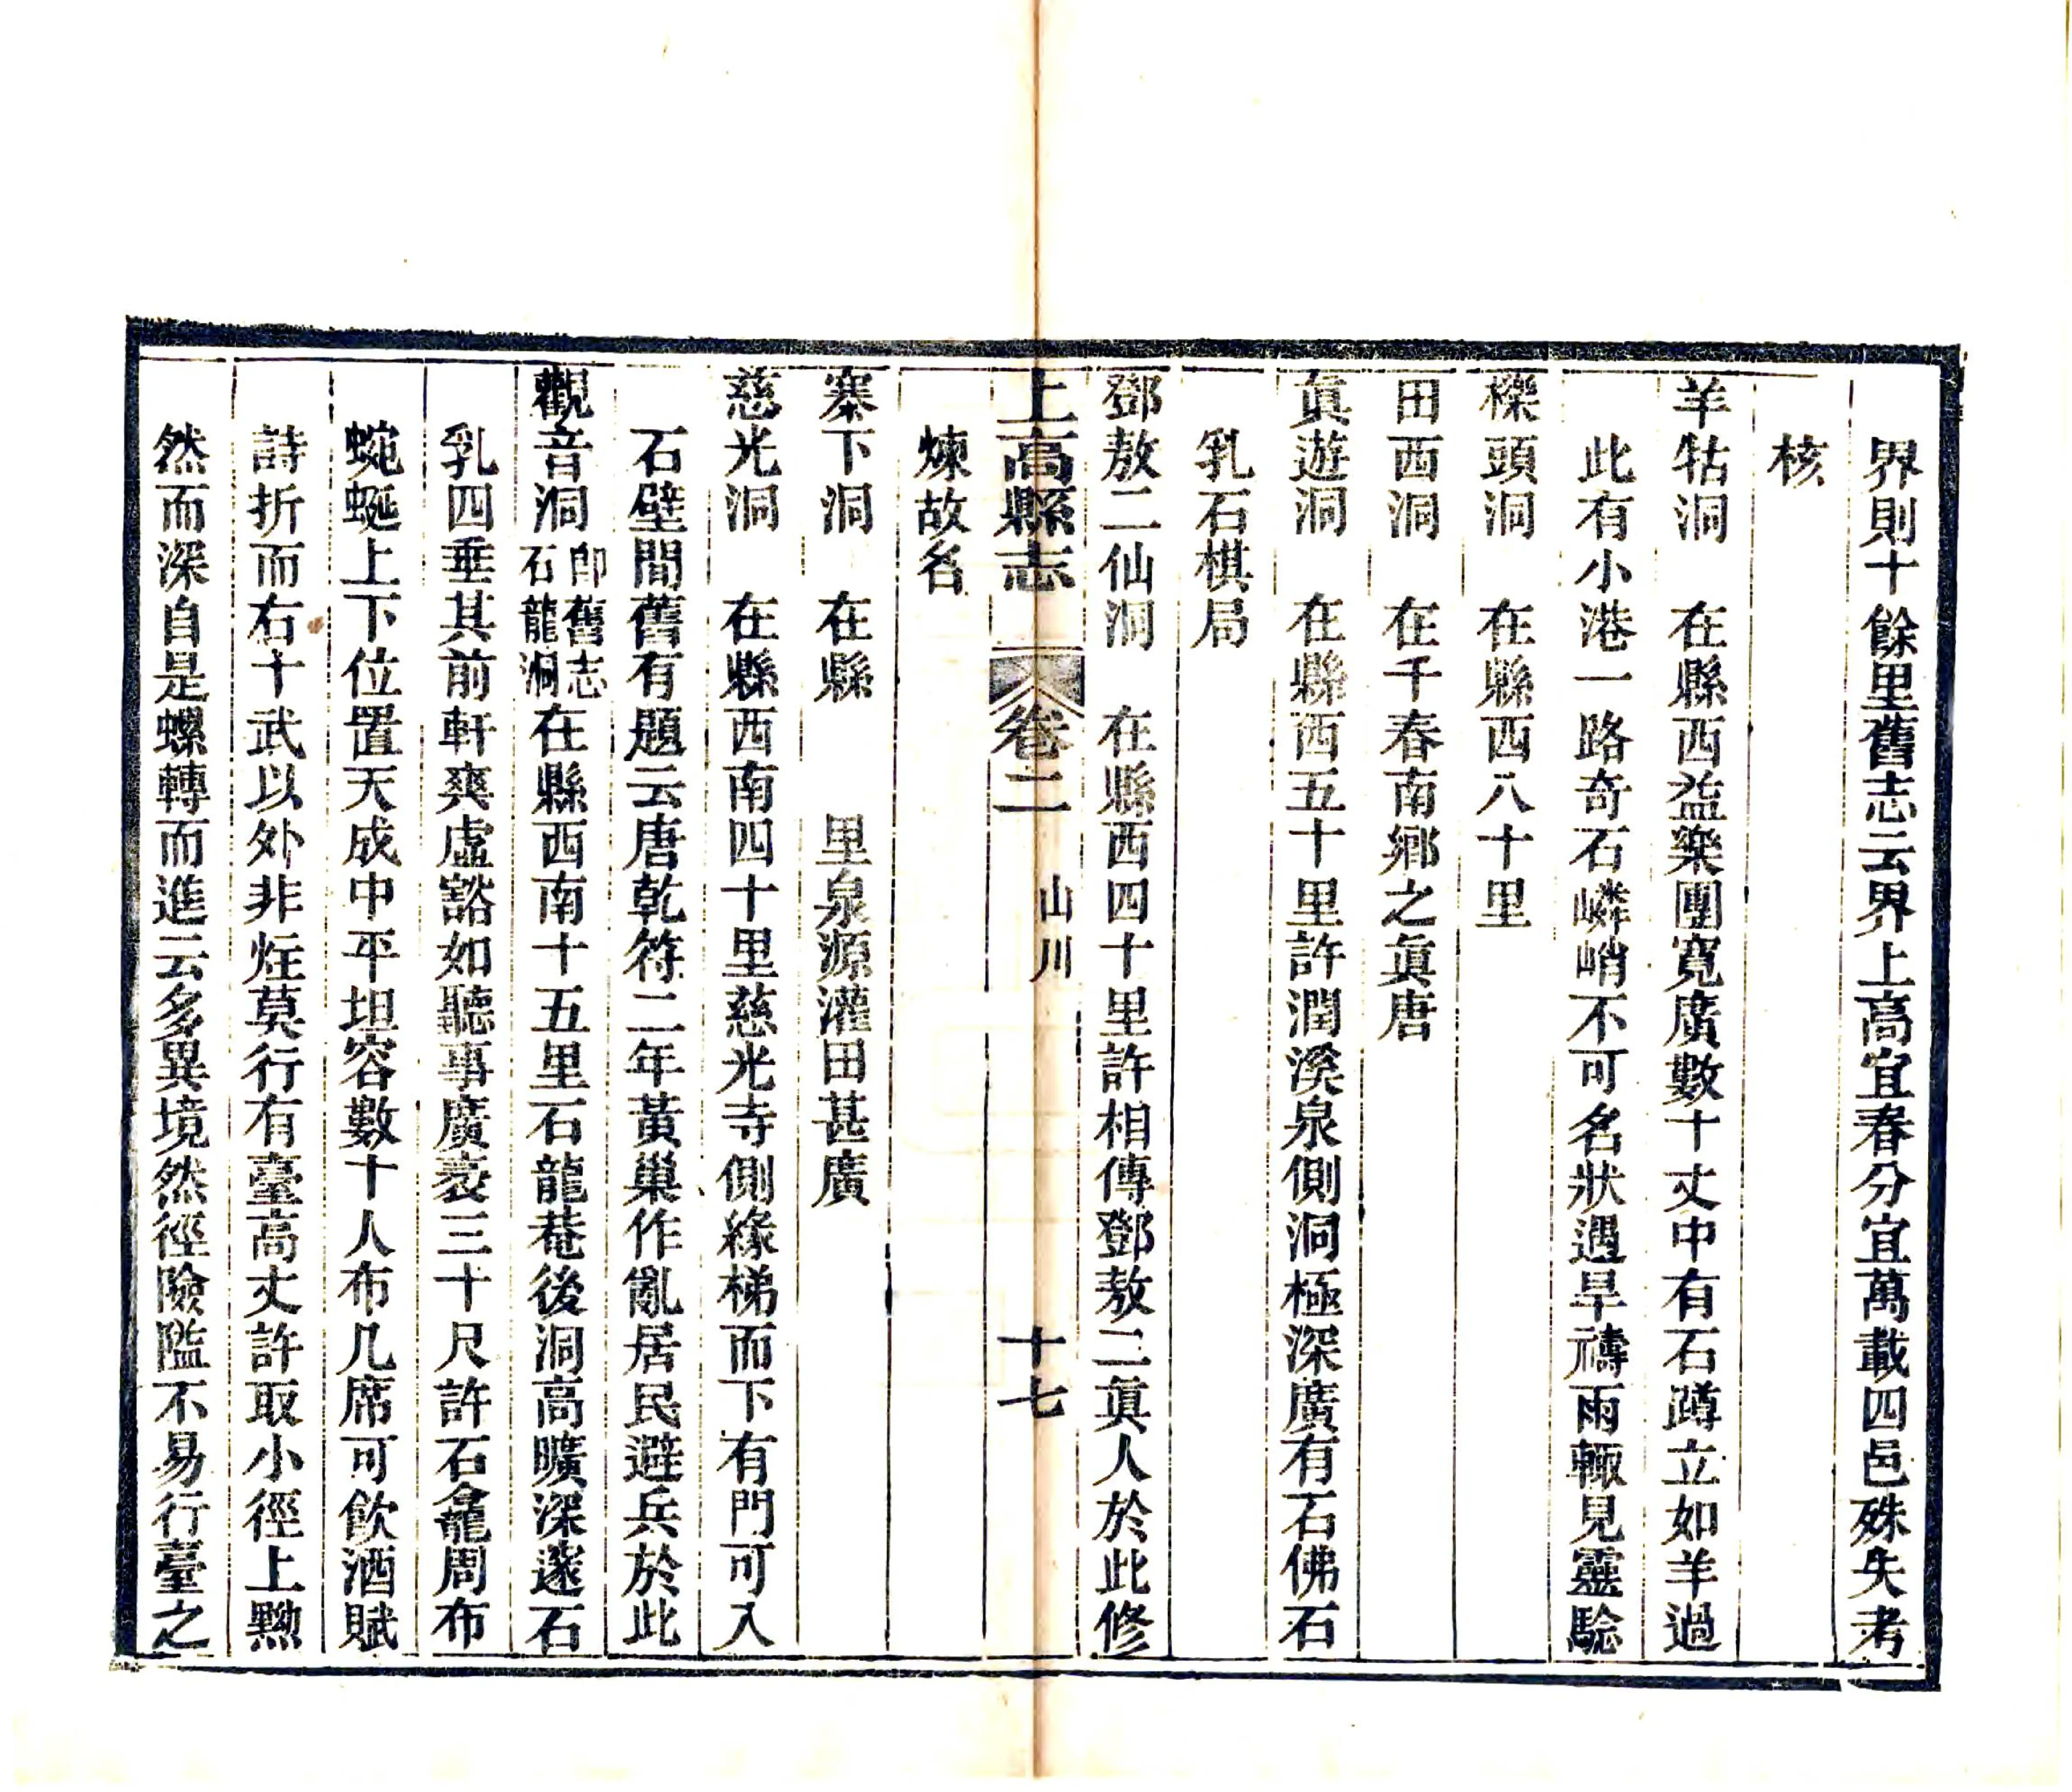 界則十餘里舊志云界上高宜春分宜萬載四邑殊失考
核
羊牯洞　在縣西益樂團寬廣數十丈中有石蹲立如羊過
此有小港一路奇石嶙峭不可名狀遇旱禱雨輙見靈驗
櫟頭洞　在縣西八十里
田西洞　在千春南鄉之眞唐
眞遊洞　在縣西五十里許潤溪泉側洞極深廣有石佛石
乳石棋局
鄧敖二仙洞　在縣西四十里許相傳鄧敖二眞人於此修
上高縣志　卷二　山川　十七
煉故名
寨下洞　在縣　　里泉源灌田甚廣
慈光洞　在縣西南四十里慈光寺側緣梯而下有門可入
石壁間舊有題云唐乾符二年黃巢作亂居民避兵於此
觀音洞 卽舊志石龍洞 在縣西南十五里石龍菴後洞高曠深邃石
乳四垂其前軒爽虛豁如聽事廣袤三十尺許石龕周布
蜿蜒上下位置天成中平坦容數十人布几席可飲酒賦
詩折而右十武以外非炷莫行有臺高丈許取小徑上黝
然而深自是螺轉而進云多異境然徑險隘不易行臺之